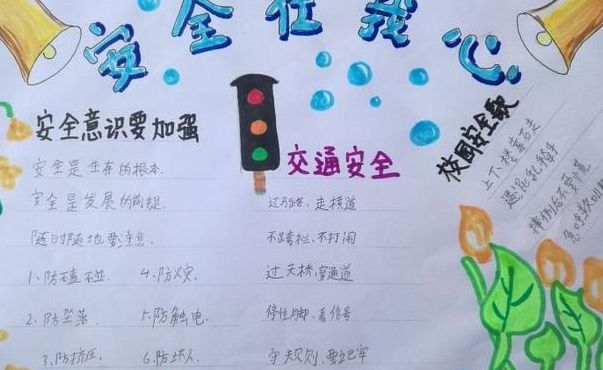 安全在我心
安全意识要加强
安全是生存的根本.
安全是发展的前提.
随时随地要注意.
1.防磕碰 4.防火灾.
2.防坠落 5.防触电.
3.防挤压. 6.防坏人
交通安全
过马路,走横道
不跨栏,不打闹
过天桥,穿通道
停住脚,看信号
守规则,要记牢
校园安全歌
上下楼靠右走
遇混乱
摔倒后不要慌